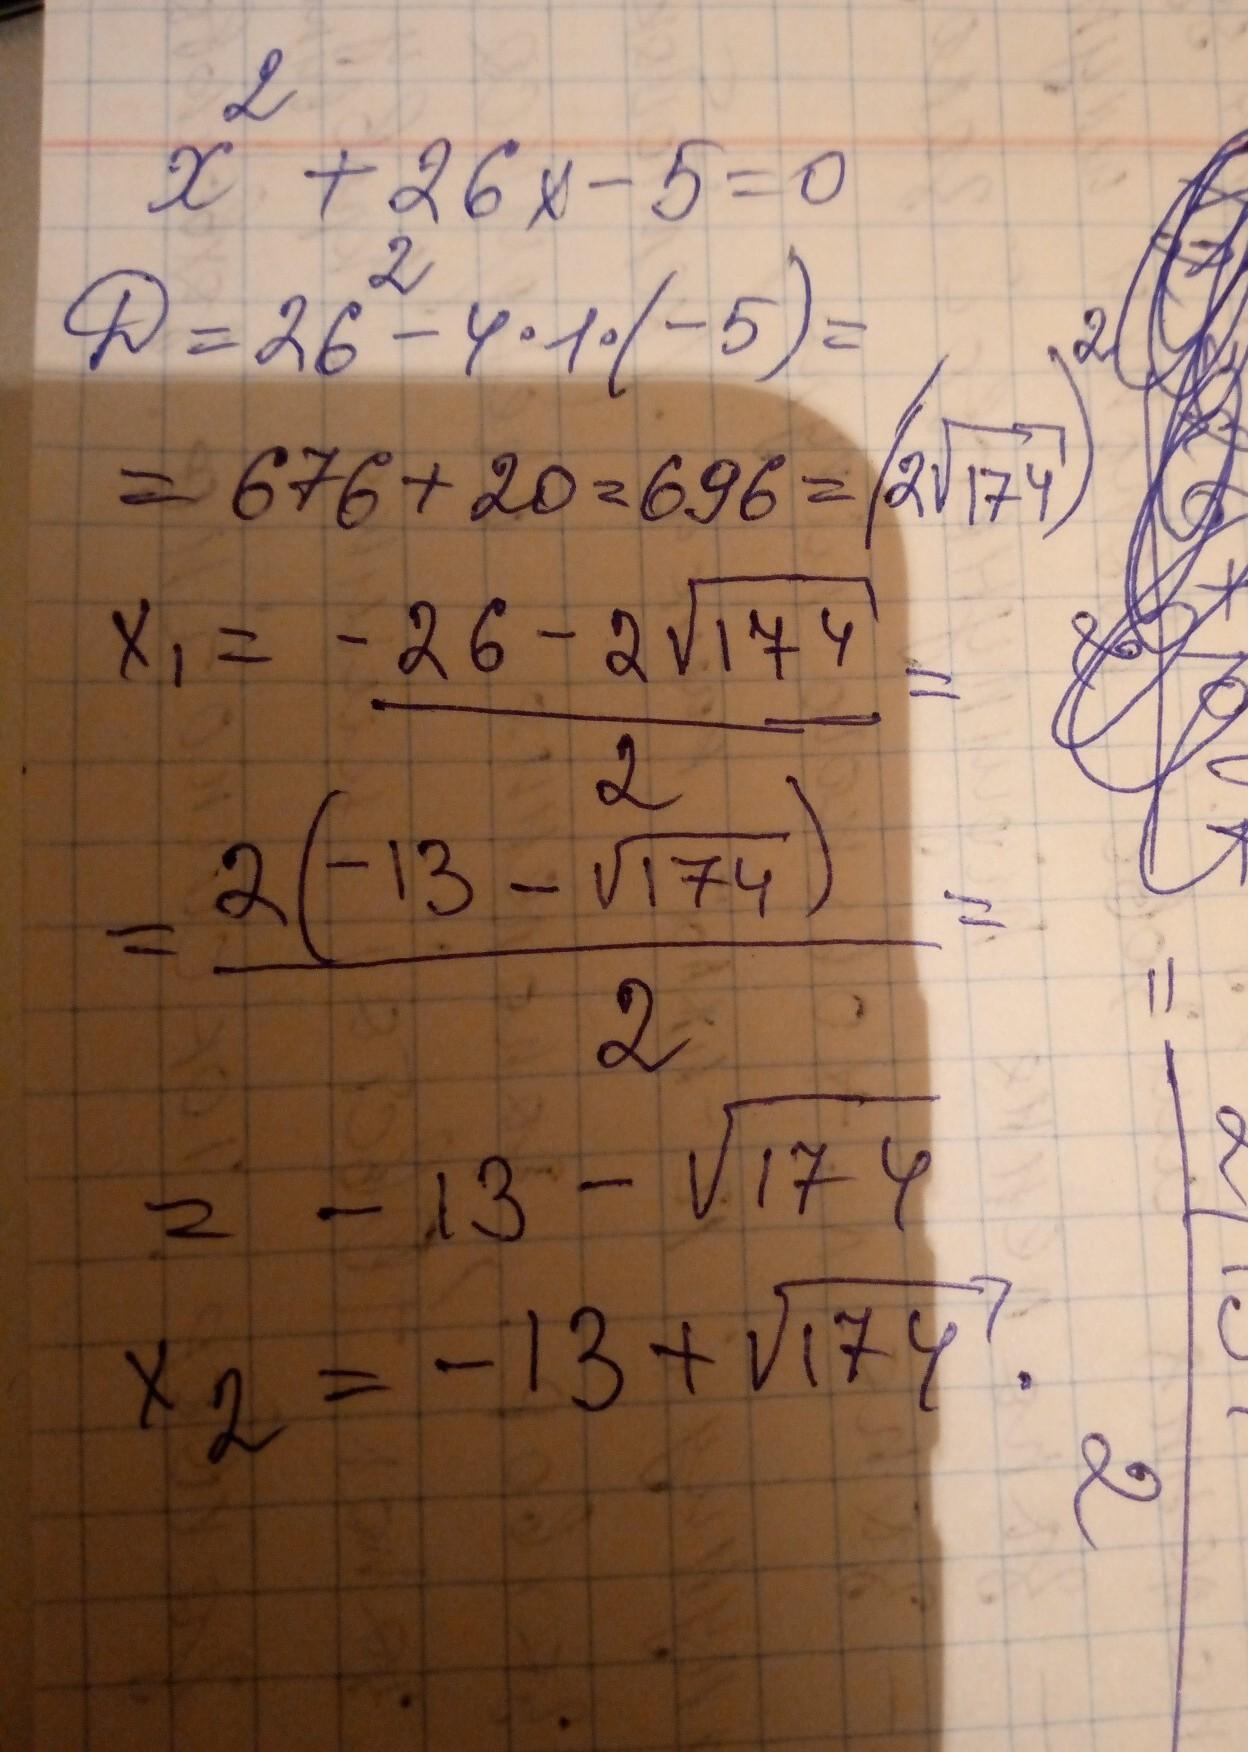 x² + 26x - 5 = 0
D = 26² - 4·1·(-5) =
= 676 + 20 = 696 = (2√174)²
x₁ = (-26 - 2√174)/2 =
= 2(-13 - √174)/2 =
= -13 - √174
x₂ = -13 + √174.